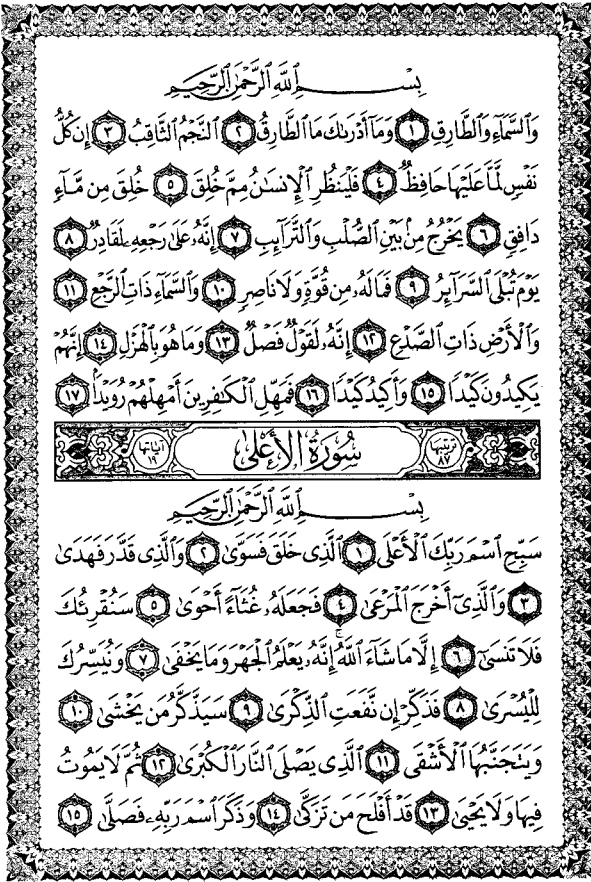 بِسْمِ اللَّهِ الرَّحْمَٰنِ الرَّحِيمِ
وَالسَّمَاءِ وَالطَّارِقِ ١ وَمَا أَدْرَىٰكَ مَا الطَّارِقُ ٢ النَّجْمُ الثَّاقِبُ ٣ إِن كُلُّ
نَفْسٍ لَّمَّا عَلَيْهَا حَافِظٌ ٤ فَلْيَنظُرِ الْإِنسَٰنُ مِمَّ خُلِقَ ٥ خُلِقَ مِن مَّاءٍ
دَافِقٍ ٦ يَخْرُجُ مِنۢ بَيْنِ الصُّلْبِ وَالتَّرَائِبِ ٧ إِنَّهُۥ عَلَىٰ رَجْعِهِۦ لَقَادِرٌ ٨
يَوْمَ تُبْلَى السَّرَائِرُ ٩ فَمَا لَهُۥ مِن قُوَّةٍ وَلَا نَاصِرٍ ١٠ وَالسَّمَاءِ ذَاتِ الرَّجْعِ ١١
وَالْأَرْضِ ذَاتِ الصَّدْعِ ١٢ إِنَّهُۥ لَقَوْلٌ فَصْلٌ ١٣ وَمَا هُوَ بِالْهَزْلِ ١٤ إِنَّهُمْ
يَكِيدُونَ كَيْدًا ١٥ وَأَكِيدُ كَيْدًا ١٦ فَمَهِّلِ الْكَٰفِرِينَ أَمْهِلْهُمْ رُوَيْدًا ١٧
ترتيبها ٨٧ سُورَةُ الْأَعْلَىٰ آياتها ١٩
بِسْمِ اللَّهِ الرَّحْمَٰنِ الرَّحِيمِ
سَبِّحِ اسْمَ رَبِّكَ الْأَعْلَى ١ الَّذِي خَلَقَ فَسَوَّىٰ ٢ وَالَّذِي قَدَّرَ فَهَدَىٰ
٣ وَالَّذِي أَخْرَجَ الْمَرْعَىٰ ٤ فَجَعَلَهُۥ غُثَاءً أَحْوَىٰ ٥ سَنُقْرِئُكَ
فَلَا تَنسَىٰ ٦ إِلَّا مَا شَاءَ اللَّهُ ۚ إِنَّهُۥ يَعْلَمُ الْجَهْرَ وَمَا يَخْفَىٰ ٧ وَنُيَسِّرُكَ
لِلْيُسْرَىٰ ٨ فَذَكِّرْ إِن نَّفَعَتِ الذِّكْرَىٰ ٩ سَيَذَّكَّرُ مَن يَخْشَىٰ ١٠
وَيَتَجَنَّبُهَا الْأَشْقَى ١١ الَّذِي يَصْلَى النَّارَ الْكُبْرَىٰ ١٢ ثُمَّ لَا يَمُوتُ
فِيهَا وَلَا يَحْيَىٰ ١٣ قَدْ أَفْلَحَ مَن تَزَكَّىٰ ١٤ وَذَكَرَ اسْمَ رَبِّهِۦ فَصَلَّىٰ ١٥